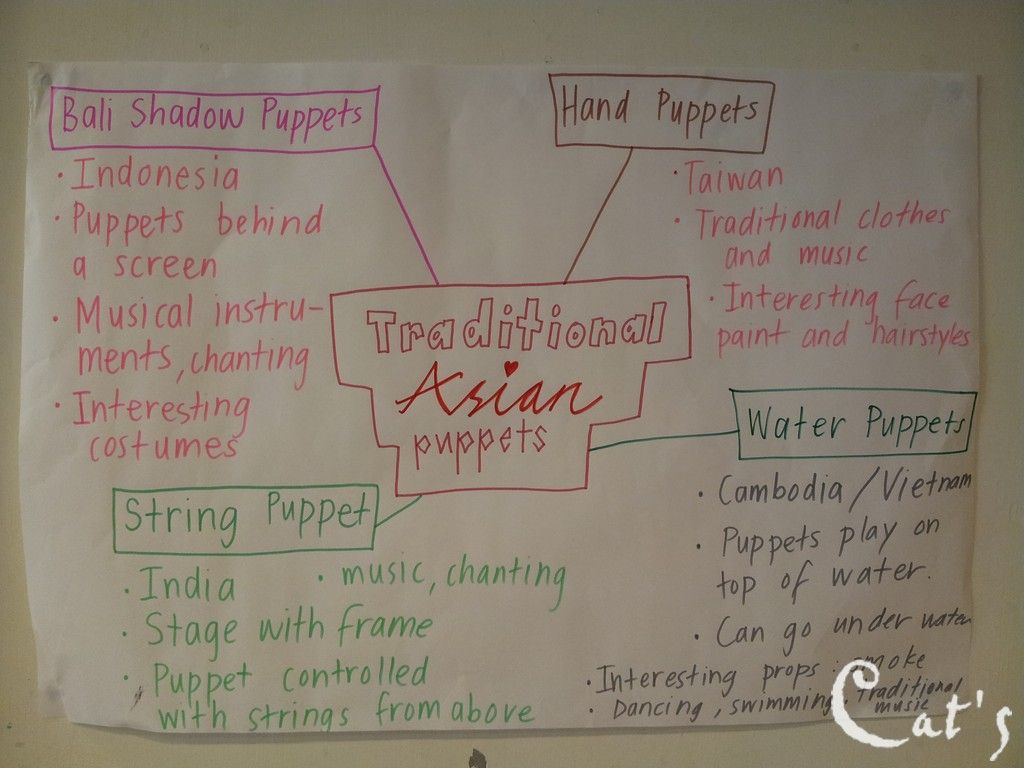 Bali Shadow Puppets
· Indonesia
· Puppets behind
a screen
· Musical instru-
ments, chanting
· Interesting
costumes
Hand Puppets
· Taiwan
· Traditional clothes
and music
· Interesting face
paint and hairstyles
Traditional
Asian
puppets
Water Puppets
· Cambodia/Vietnam
· Puppets play on
top of water.
· Can go under water
· Interesting props : smoke
· Dancing, swimming, traditional
music
String Puppet
· India
· music, chanting
· Stage with frame
· Puppet controlled
with strings from above
Cat's